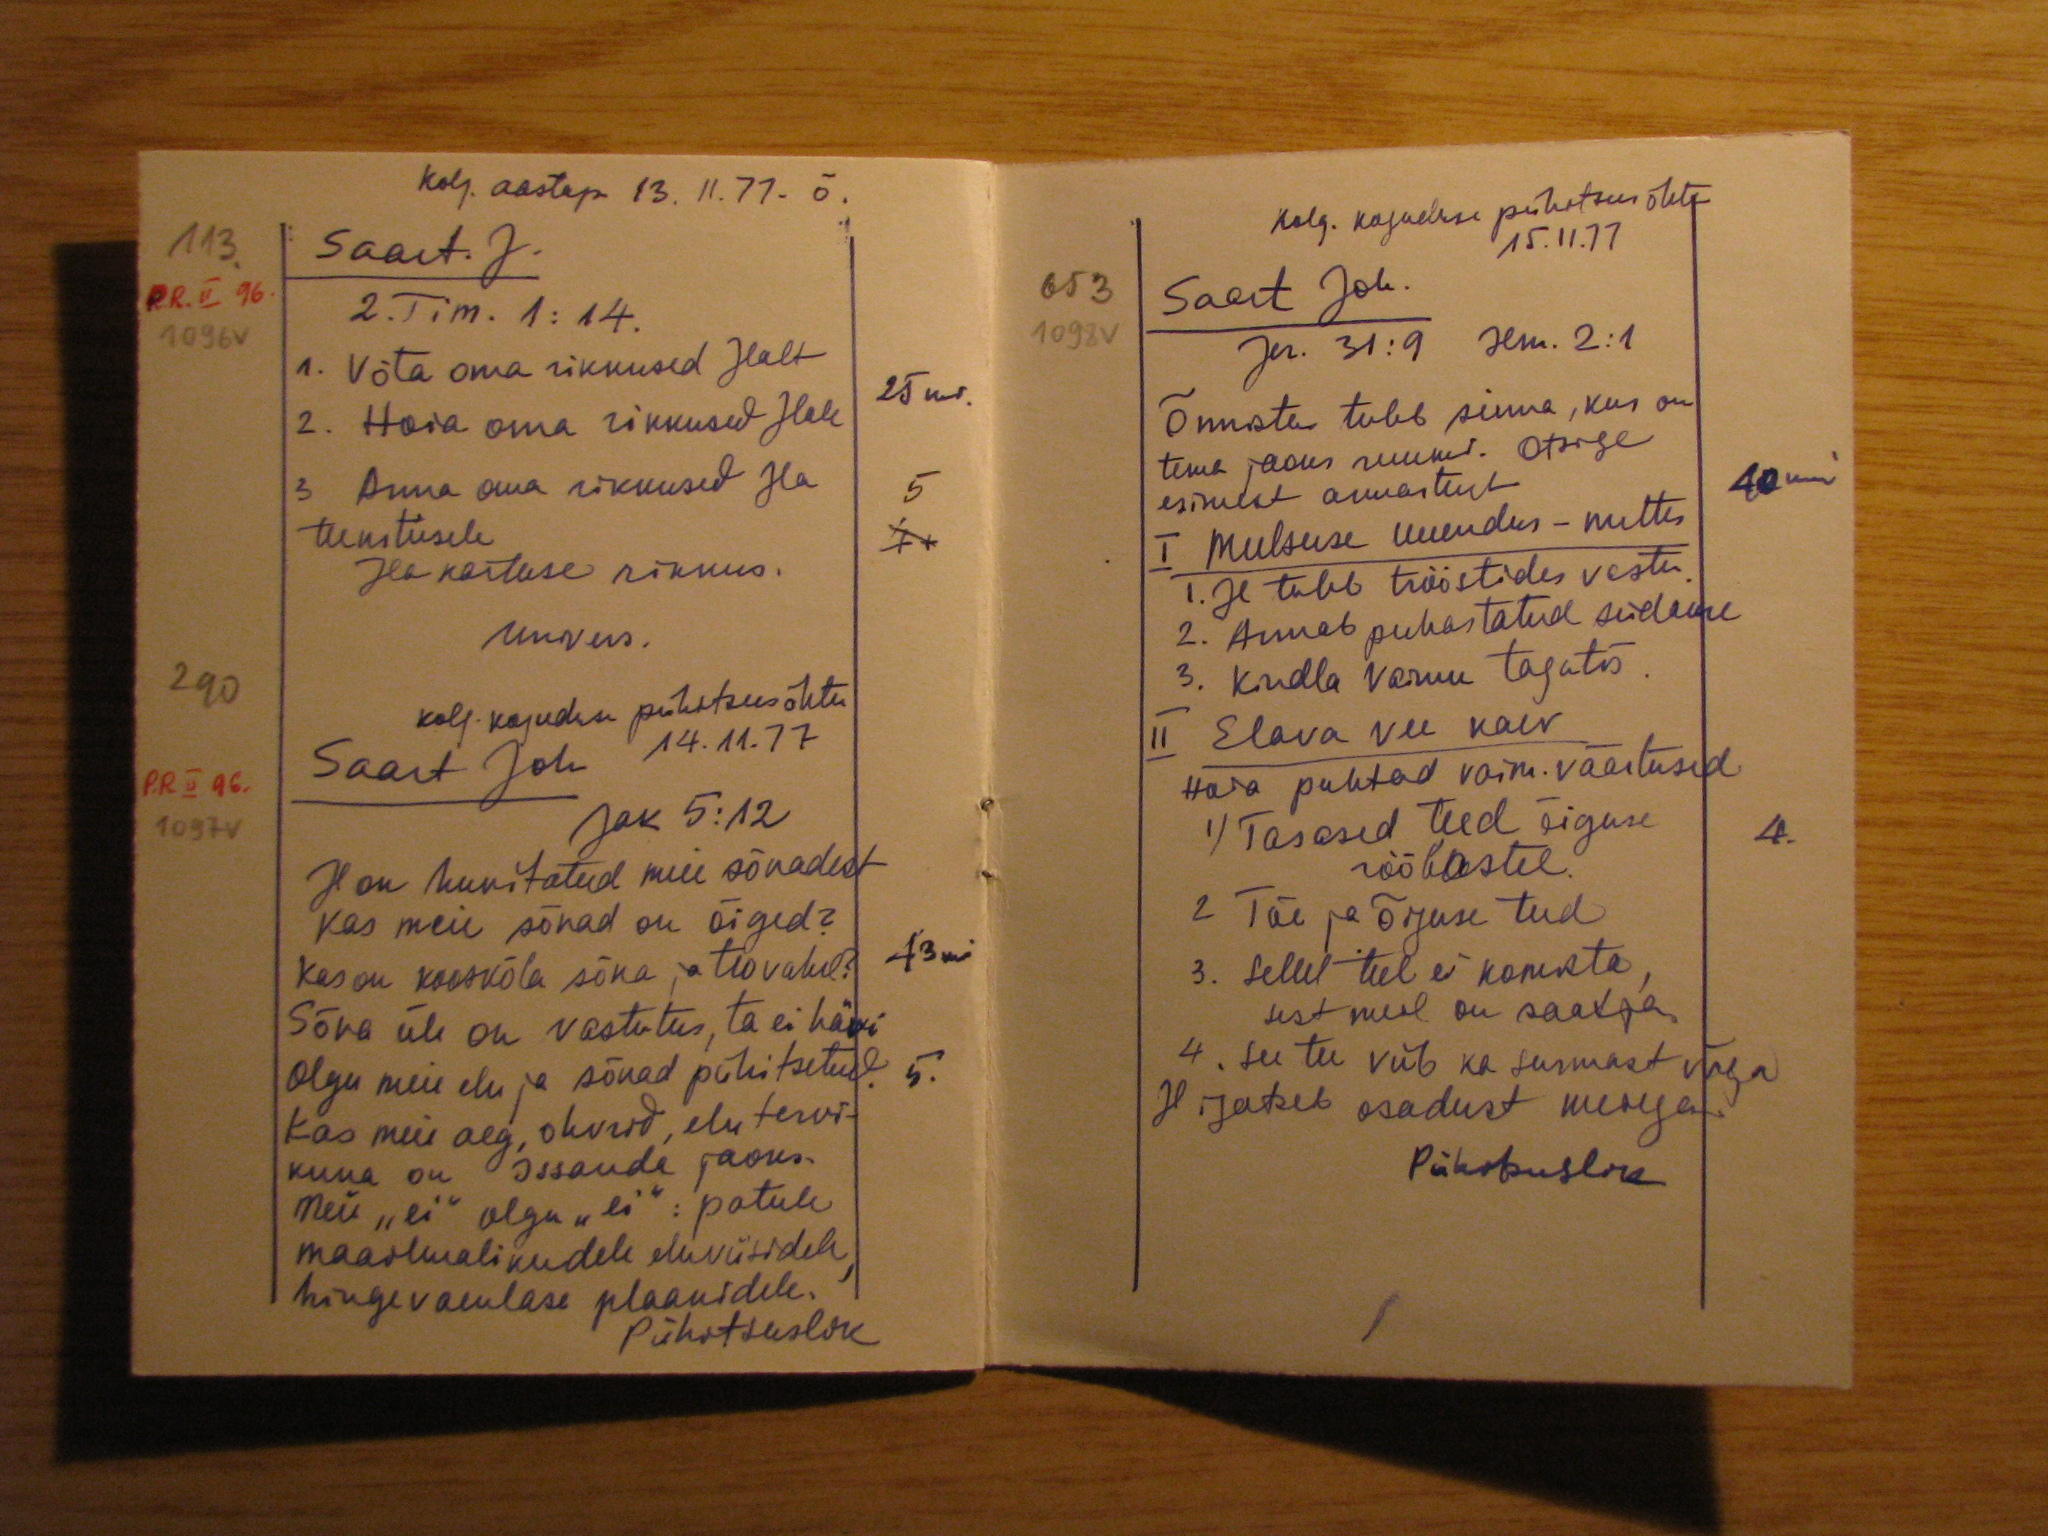 Kolg. aastap 13.11.77. õ.
113.
Saart. J.
P.R. II 96.
1096v
2. Tim. 1:14.
1. Võta oma rikkused Jlalt
25 mi.
2. Hoia oma rikkused Jlale
3 Anna oma rikkused Jla
5
teenistusele
Jla kartuse rikkus.
Univers.
290
Kolg. koguduse pühitsusõhtu
14.11.77
Saart Joh
P.R II 96.
1097v
Jak 5:12
Jl on huvitatud meie sõnadest
Kas meie sõnad on õiged?
Kas on kooskõla sõna ja teo vahel?
43 mi
Sõna üle on vastutus, ta ei hävi
Olgu meie elu ja sõnad pühitsetud.
5.
Kas meie aeg, ohvrid, elu tervi-
kuna on Issanda jaoks.
Meie „ei“ olgu „ei“: patule
maailmalikudele eluviisidele,
hingevaenlase plaanidele.
Pühitsuslik
Kolg. koguduse pühitsusõhtu
15.11.77
653
1098v
Saart Joh.
Jer. 31:9 Jlm. 2:1
Õnnistus tuleb sinna, kus on
tema jaoks ruumi. Otsige
esimest armastust
40 min
I Meelsuse uuendus - nuttes
1. Jl tuleb trööstides vastu.
2. Annab puhastatud südame
3. Kindla Vaimu tagatis.
II Elava vee kaev
Hoia puhtad vaim. väärtused
1) Tasased teed õiguse
4.
rööbastel.
2 Tõe ja Õiguse teed
3. Sellel teel ei komista,
sest meil on saatja.
4. See tee viib ka surmast välja
Jl igatseb osadust meiega.
Pühitsuslik